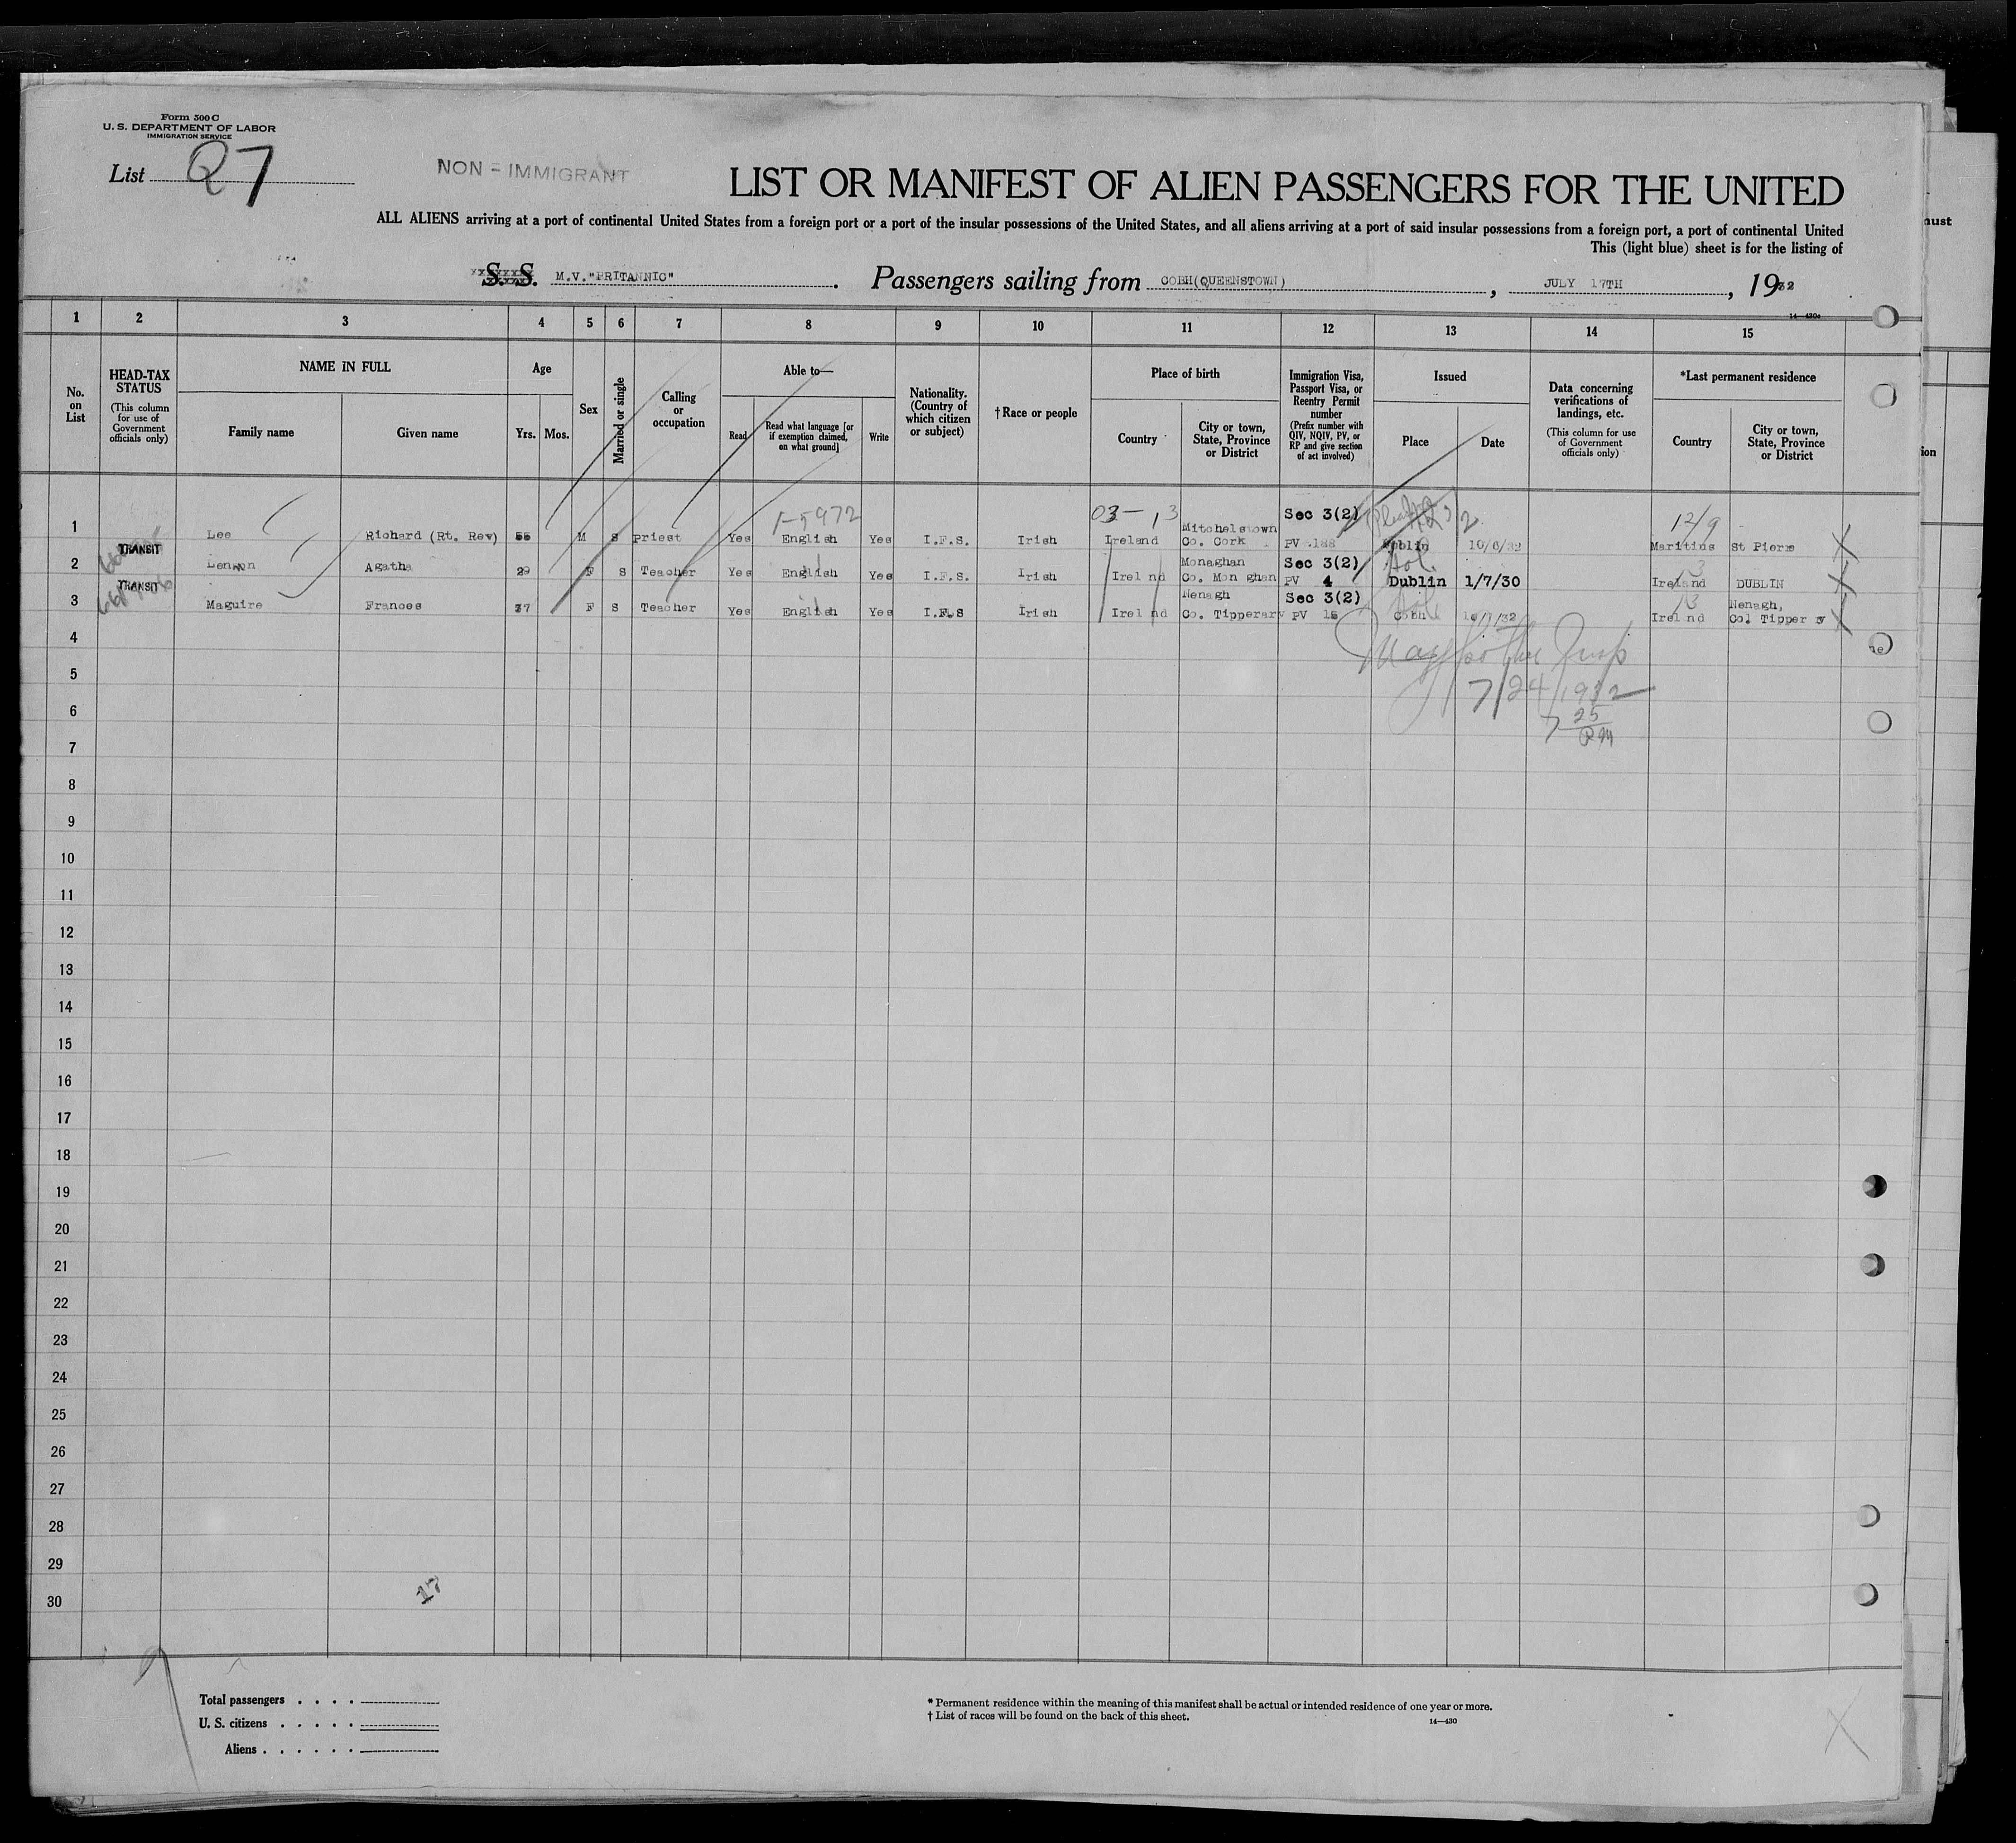 Form 500 C
U. S. DEPARTMENT OF LABOR
IMMIGRATION SERVICE
List 27
NON - IMMIGRANT
LIST OR MANIFEST OF ALIEN PASSENGERS FOR THE UNITED
ALL ALIENS arriving at a port of continental United States from a foreign port or a port of the insular possessions of the United States, and all aliens arriving at a port of said insular possessions from a foreign port, a port of continental United
This (light blue) sheet is for the listing of
S. S. M.V."BRITANNIC". Passengers sailing from COBH(QUEENSTOWN), JULY 17TH, 1932
14—430
1 2 3 4 5 6 7 8 9 10 11 12 13 14 15
No. on List
HEAD-TAX STATUS
(This column for use of Government officials only)
NAME IN FULL
Family name
Given name
Age
Yrs. Mos.
Sex
Married or single
Calling or occupation
Able to—
Read
Read what language [or if exemption claimed, on what ground]
Write
Nationality. (Country of which citizen or subject)
†Race or people
Place of birth
Country
City or town, State, Province or District
Immigration Visa, Passport Visa, or Reentry Permit number
(Prefix number with QIV, NQIV, PV, or RP and give section of act involved)
Issued
Place
Date
Data concerning verifications of landings, etc.
(This column for use of Government officials only)
*Last permanent residence
Country
City or town, State, Province or District
1-5972
03- 13
12/9
1 Lee Richard (Rt. Rev) 55 M S priest Yes English Yes I.F.S. Irish Ireland Mitchelstown Co. Cork Sec 3(2) PV 188 Dublin 10/6/32 Maritius St Pierre
TRANSIT
2 Lennon Agatha 29 F S Teacher Yes English Yes I.F.S. Irish Irel nd Monaghan Co. Mon ghan Sec 3(2) PV 4 Dublin 1/7/30 Ireland DUBLIN
TRANSIT
3 Maguire Frances 37 F S Teacher Yes English Yes I.F.S Irish Irel nd Nenagh Co. Tipperary Sec 3(2) PV 15 Cobh /7/32 Irel nd Nenagh, Co. Tipper y
4
5
7/24/1932
6
7 25
7
8
9
10
11
12
13
14
15
16
17
18
19
20
21
22
23
24
25
26
27
28
29
30
17
Total passengers . . . .
U. S. citizens . . . . .
Aliens . . . . . .
* Permanent residence within the meaning of this manifest shall be actual or intended residence of one year or more.
† List of races will be found on the back of this sheet.
14—430